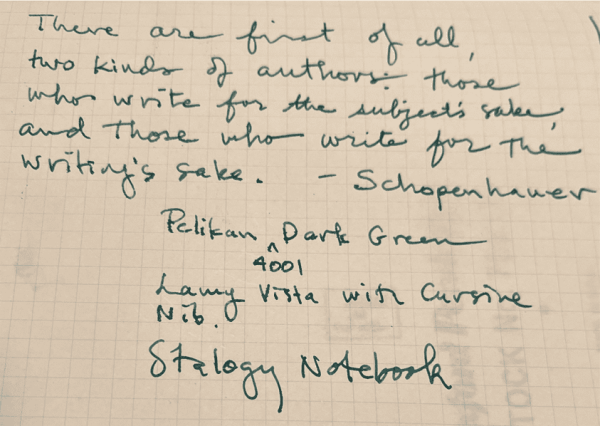 There are first of all,
two kinds of authors: those
who write for the subject's sake,
and those who write for the
writing's sake. - Schopenhauer
Pelikan ^ Dark Green
4001
Lamy Vista with Cursive
Nib.
Stalogy Notebook